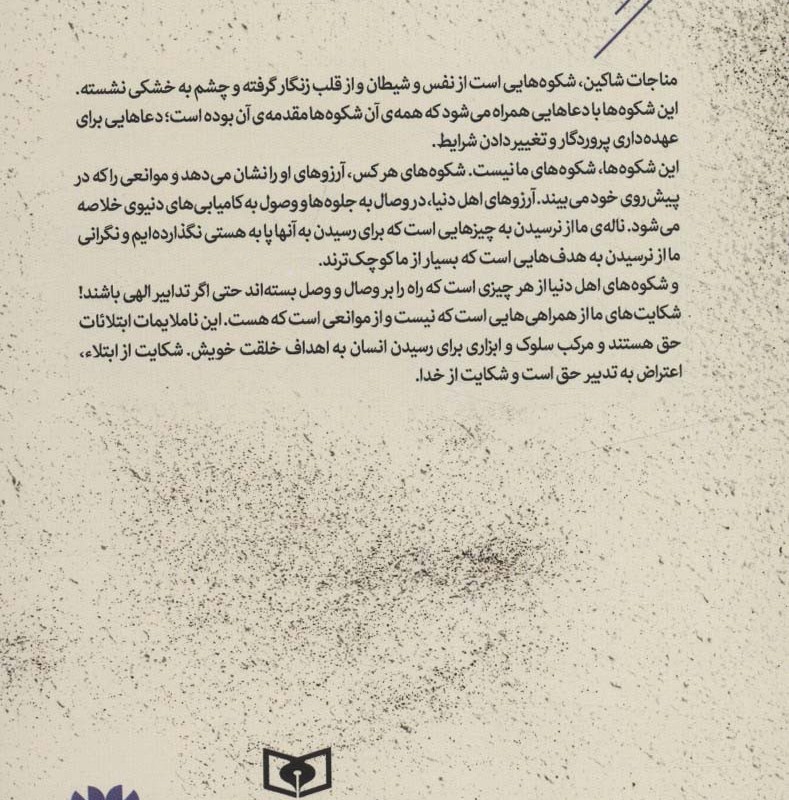 مناجات شاکین، شکوه‌هایی است از نفس و شیطان و از قلب زنگار گرفته و چشم به خشکی نشسته.
این شکوه‌ها با دعاهایی همراه می‌شود که همه‌ی آن شکوه‌ها مقدمه‌ی آن بوده است؛ دعاهایی برای
عهده‌داری پروردگار و تغییر دادن شرایط.
این شکوه‌ها، شکوه‌های ما نیست. شکوه‌های هر کس، آرزوهای او را نشان می‌دهد و موانعی را که در
پیش‌روی خود می‌بیند. آرزوهای اهل دنیا، در وصال به جلوه‌ها و وصول به کامیابی‌های دنیوی خلاصه
می‌شود. ناله‌ی ما از نرسیدن به چیزهایی است که برای رسیدن به آنها پا به هستی نگذارده‌ایم و نگرانی
ما از نرسیدن به هدف‌هایی است که بسیار از ما کوچک‌ترند.
و شکوه‌های اهل دنیا از هر چیزی است که راه را بر وصال و وصل بسته‌اند حتی اگر تدابیر الهی باشند!
شکایت‌های ما از همراهی‌هایی است که نیست و از موانعی است که هست. این ناملایمات ابتلائات
حق هستند و مرکب سلوک و ابزاری برای رسیدن انسان به اهداف خلقت خویش. شکایت از ابتلاء،
اعتراض به تدبیر حق است و شکایت از خدا.